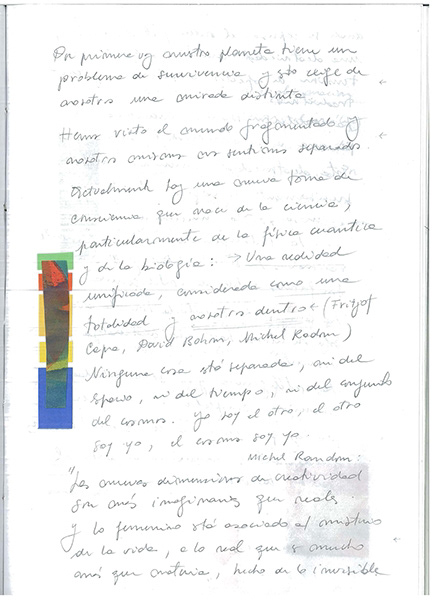 Por primera vez nuestro planeta tiene un
problema de survivencia y esto exige de
nosotros una mirada distinta
Hemos visto el mundo fragmentado y
nosotros mismos nos sentimos separados.
Actualmente hay una nueva toma de
consciencia que nace de la ciencia,
particularmente de la física cuantica
y de la biología: → Una realidad
unificada, considerada como una
totalidad y nosotros dentro ← (Fritjof
Capra, David Bohm, Michel Random)
Ninguna cosa está separada, ni del
espacio, ni del tiempo, ni del conjunto
del cosmos. Yo soy el otro, el otro
soy yo, el cosmos soy yo.
Michel Random:
"Las nuevas dimensiones de creatividad
son más imaginarias que reales.
Y lo femenino está asociado al misterio
de la vida, a lo real que es mucho
más que materia, hecho de lo invisible